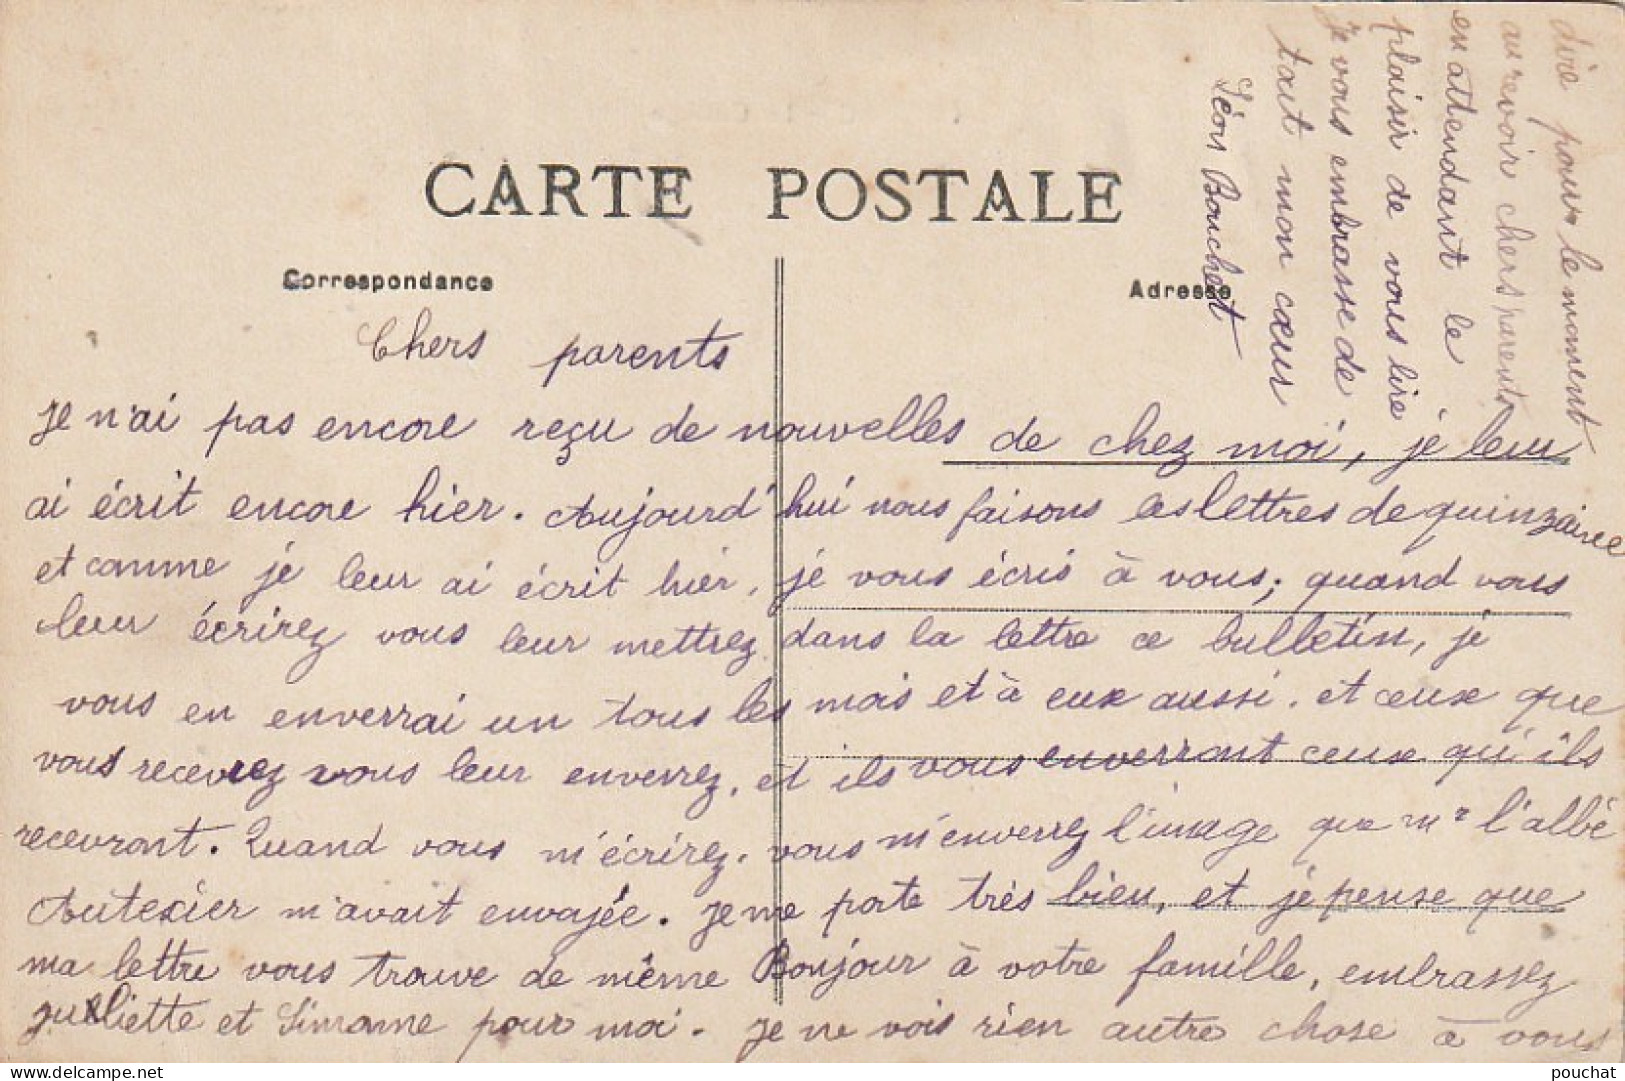 CARTE POSTALE
Correspondance
Adresse
Chers parents
Je n'ai pas encore reçu de nouvelles de chez moi, je leur
ai écrit encore hier. Aujourd'hui nous faisons les lettres de quinzaine
et comme je leur ai écrit hier, je vous écris à vous; quand vous
leur écrirez vous leur mettrez dans la lettre ce bulletin, je
vous en enverrai un tous les mois et à eux aussi. et ceux que
vous recevrez vous leur enverrez, et ils vous enverront ceux qu'ils
recevront. Quand vous m'écrirez, vous m'enverrez l'image que mr l'abbé
Autexier m'avait envoyée. Je me porte très bien, et je pense que
ma lettre vous trouve de même Bonjour à votre famille, embrassez
Juliette et Simone pour moi. Je ne vois rien autre chose à vous
dire pour le moment
au revoir chers parents
en attendant le
plaisir de vous lire
je vous embrasse de
tout mon cœur
Léon Bouchet
pouchat